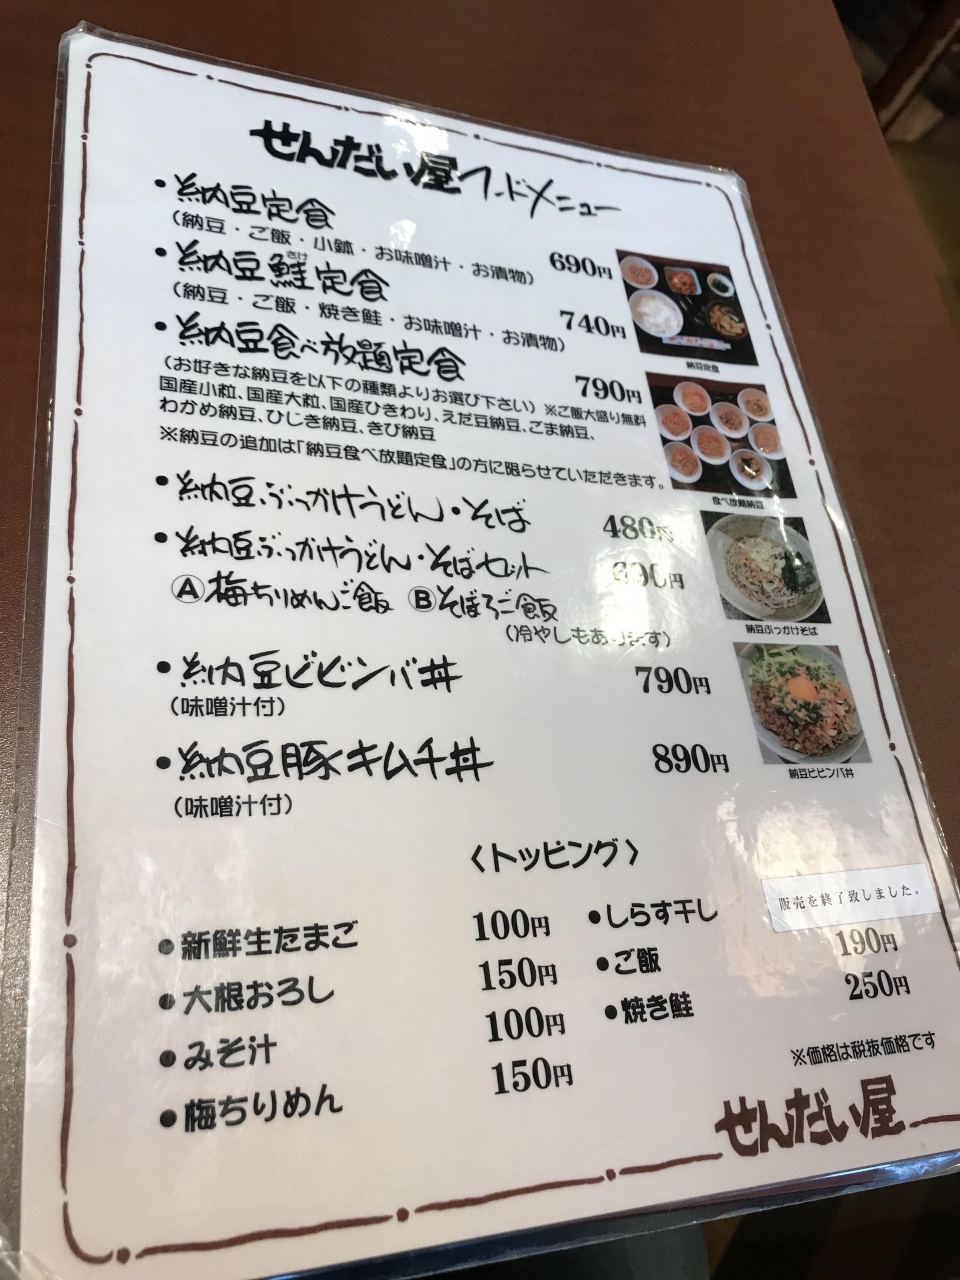 せんだい屋フードメニュー
・納豆定食
（納豆・ご飯・小鉢・お味噌汁・お漬物） 690円
さけ
・納豆鮭定食
（納豆・ご飯・焼き鮭・お味噌汁・お漬物） 740円
・納豆食べ放題定食 790円
（お好きな納豆を以下の種類よりお選び下さい）※ご飯大盛り無料
国産小粒、国産大粒、国産ひきわり、えだ豆納豆、ごま納豆、
わかめ納豆、ひじき納豆、きび納豆
※納豆の追加は「納豆食べ放題定食」の方に限らせていただきます。
・納豆ぶっかけうどん・そば 480円
・納豆ぶっかけうどん・そばセット 690円
Ⓐ梅ちりめんご飯 Ⓑそぼろご飯
（冷やしもあります）
・納豆ビビンバ丼 790円
（味噌汁付）
・納豆豚キムチ丼 890円
（味噌汁付）
納豆定食
食べ放題納豆
納豆ぶっかけそば
納豆ビビンバ丼
〈トッピング〉
●新鮮生たまご 100円
●大根おろし 150円
●みそ汁 100円
●梅ちりめん 150円
●しらす干し 販売を終了致しました。
●ご飯 190円
●焼き鮭 250円
※価格は税抜価格です
せんだい屋